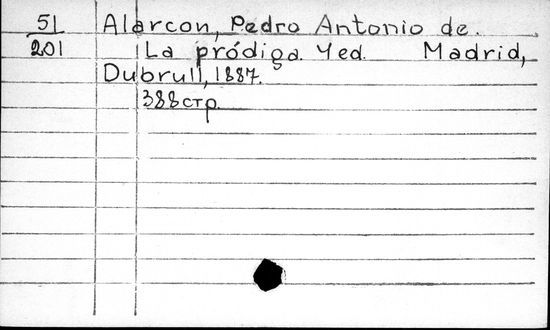 51 Alarcon, Pedro Antonio de.
201 La pródiga. 4 ed. Madrid,
Dubrull, 1887.
388 стр.